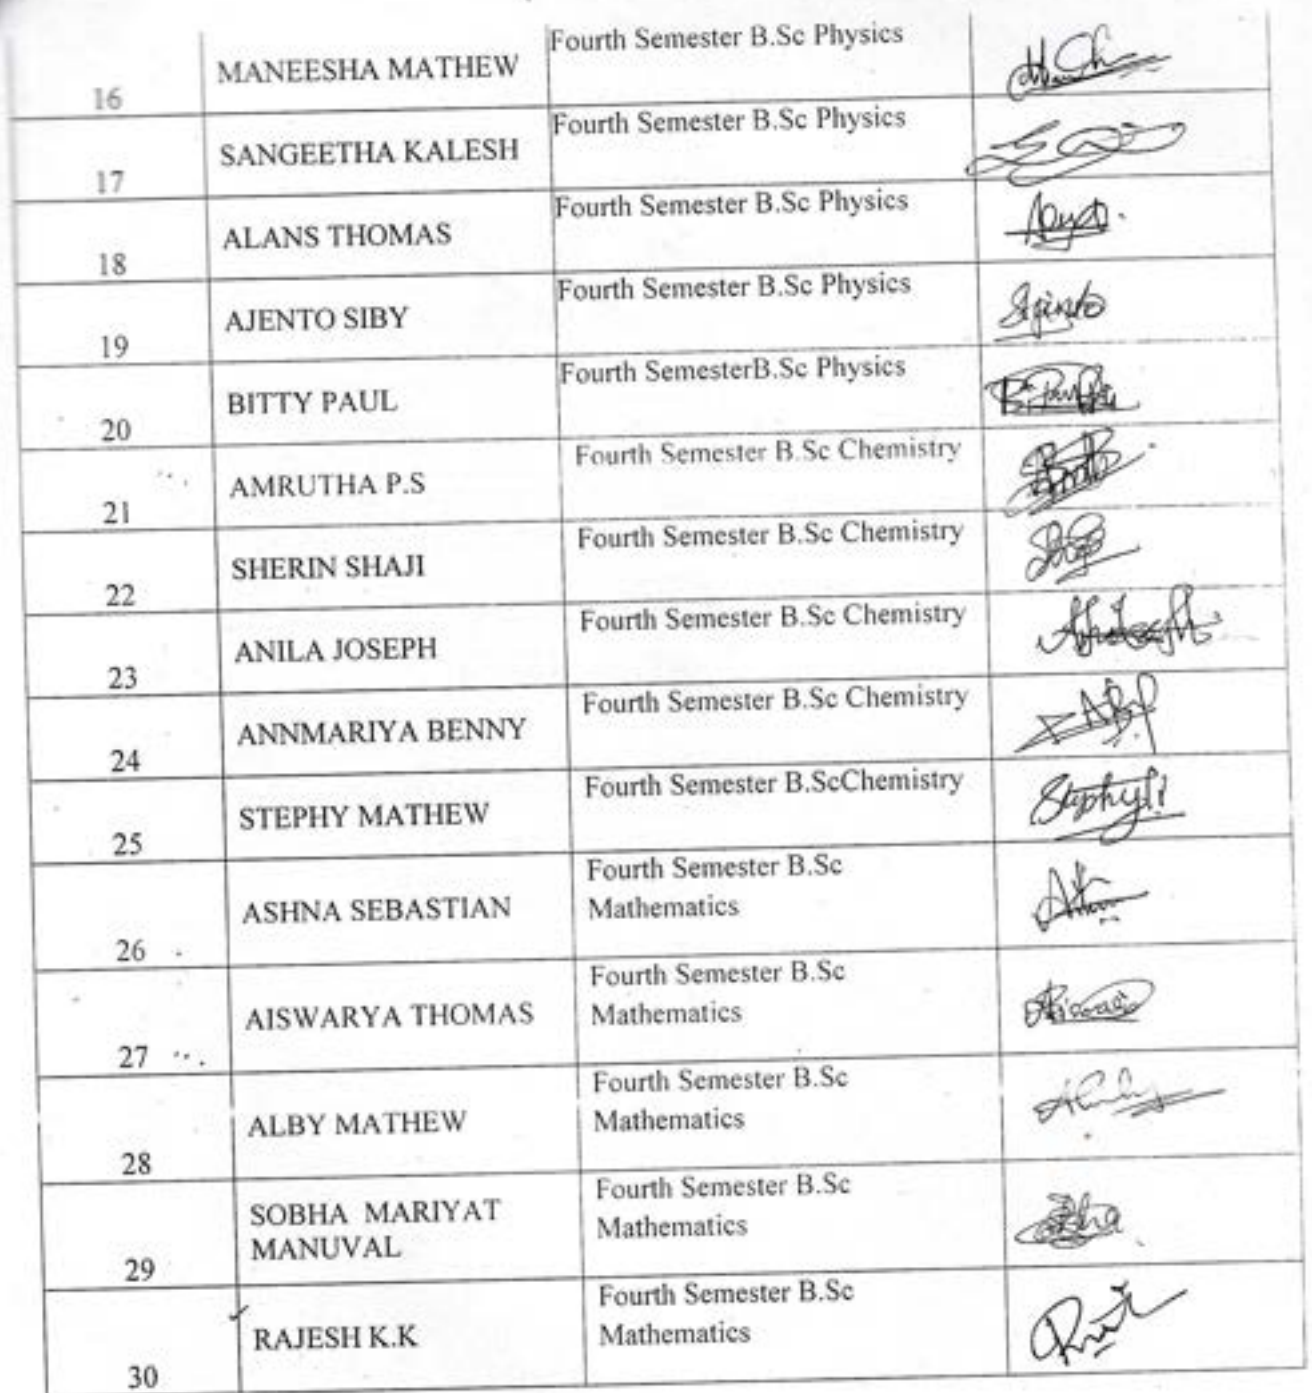 16 MANEESHA MATHEW Fourth Semester B.Sc Physics
17 SANGEETHA KALESH Fourth Semester B.Sc Physics
18 ALANS THOMAS Fourth Semester B.Sc Physics
19 AJENTO SIBY Fourth Semester B.Sc Physics
20 BITTY PAUL Fourth SemesterB.Sc Physics
21 AMRUTHA P.S Fourth Semester B.Sc Chemistry
22 SHERIN SHAJI Fourth Semester B.Sc Chemistry
23 ANILA JOSEPH Fourth Semester B.Sc Chemistry
24 ANNMARIYA BENNY Fourth Semester B.Sc Chemistry
25 STEPHY MATHEW Fourth Semester B.ScChemistry
26 ASHNA SEBASTIAN Fourth Semester B.Sc
Mathematics
27 AISWARYA THOMAS Fourth Semester B.Sc
Mathematics
28 ALBY MATHEW Fourth Semester B.Sc
Mathematics
29 SOBHA MARIYAT Fourth Semester B.Sc
MANUVAL Mathematics
30 RAJESH K.K Fourth Semester B.Sc
Mathematics